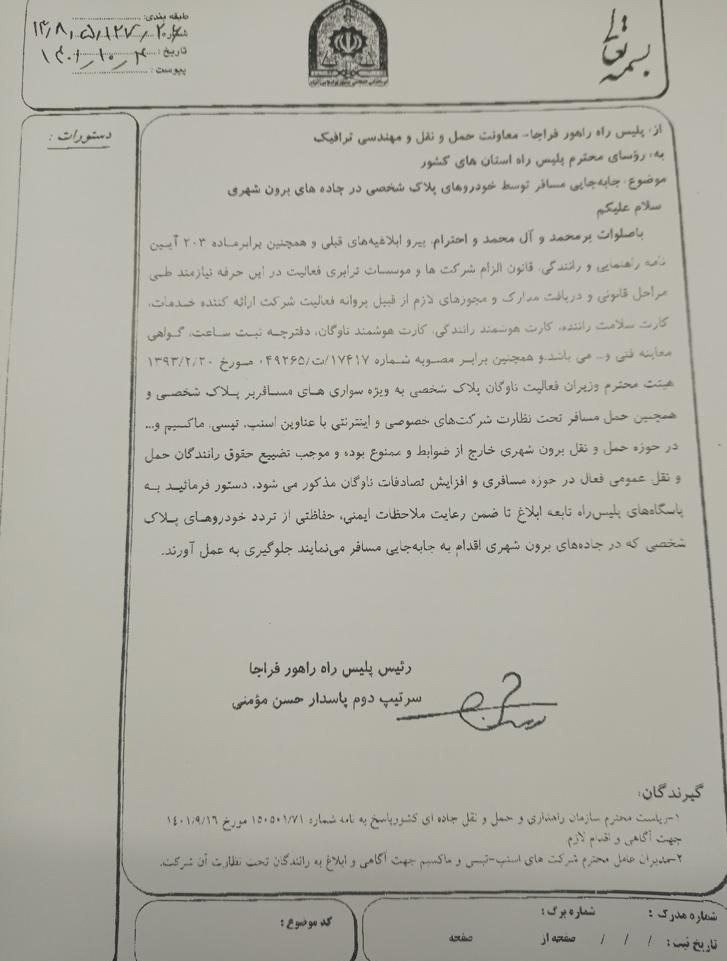 بسمه تعالی
طبقه بندی:
شماره
تاریخ: ۱۴۰۱/۱۰/۴
پیوست:
دستورات:
از: پلیس راه راهور فراجا- معاونت حمل و نقل و مهندسی ترافیک
به: رؤسای محترم پلیس راه استان های کشور
موضوع: جابه‌جایی مسافر توسط خودروهای پلاک شخصی در جاده های برون شهری
سلام علیکم
باصلوات برمحمد و آل محمد و احترام، پیرو ابلاغیه‌های قبلی و همچنین برابرماده ۲۰۳ آیین
نامه راهنمایی و رانندگی، قانون الزام شرکت ها و موسسات ترابری فعالیت در این حرفه نیازمند طی
مراحل قانونی و دریافت مدارک و مجوزهای لازم از قبیل پروانه فعالیت شرکت ارائه کننده خدمات،
کارت سلامت راننده، کارت هوشمند رانندگی، کارت هوشمند ناوگان، دفترچه ثبت ساعت، گواهی
معاینه فنی و... می باشد.و همچنین برابر مصوبه شماره ۱۷۴۱۷/ت/۴۹۲۶۵ه مورخ ۱۳۹۳/۲/۲۰
هیئت محترم وزیران فعالیت ناوگان پلاک شخصی به ویژه سواری های مسافربر پلاک شخصی و
همچنین حمل مسافر تحت نظارت شرکت‌های خصوصی و اینترنتی با عناوین اسنپ، تپسی، ماکسیم و...
در حوزه حمل و نقل برون شهری خارج از ضوابط و ممنوع بوده و موجب تضییع حقوق رانندگان حمل
و نقل عمومی فعال در حوزه مسافری و افزایش تصادفات ناوگان مذکور می شود، دستور فرمائید به
پاسگاه‌های پلیس‌راه تابعه ابلاغ تا ضمن رعایت ملاحظات ایمنی، حفاظتی از تردد خودروهای پلاک
شخصی که در جاده‌های برون شهری اقدام به جابه‌جایی مسافر می‌نمایند جلوگیری به عمل آورند.
رئیس پلیس راه راهور فراجا
سرتیپ دوم پاسدار حسن مؤمنی
گیرندگان:
۱-ریاست محترم سازمان راهداری و حمل و نقل جاده ای کشورپاسخ به نامه شماره ۱۵۰۵۰۱/۷۱ مورخ ۱۴۰۱/۹/۱۶
جهت آگاهی و اقدام لازم
۲-مدیران عامل محترم شرکت های اسنپ-تپس و ماکسیم جهت آگاهی و ابلاغ به رانندگان تحت نظارت آن شرکت.
شماره مدرک : شماره برگ :
تاریخ ثبت : / / / صفحه از صفحه
کد موضوع :